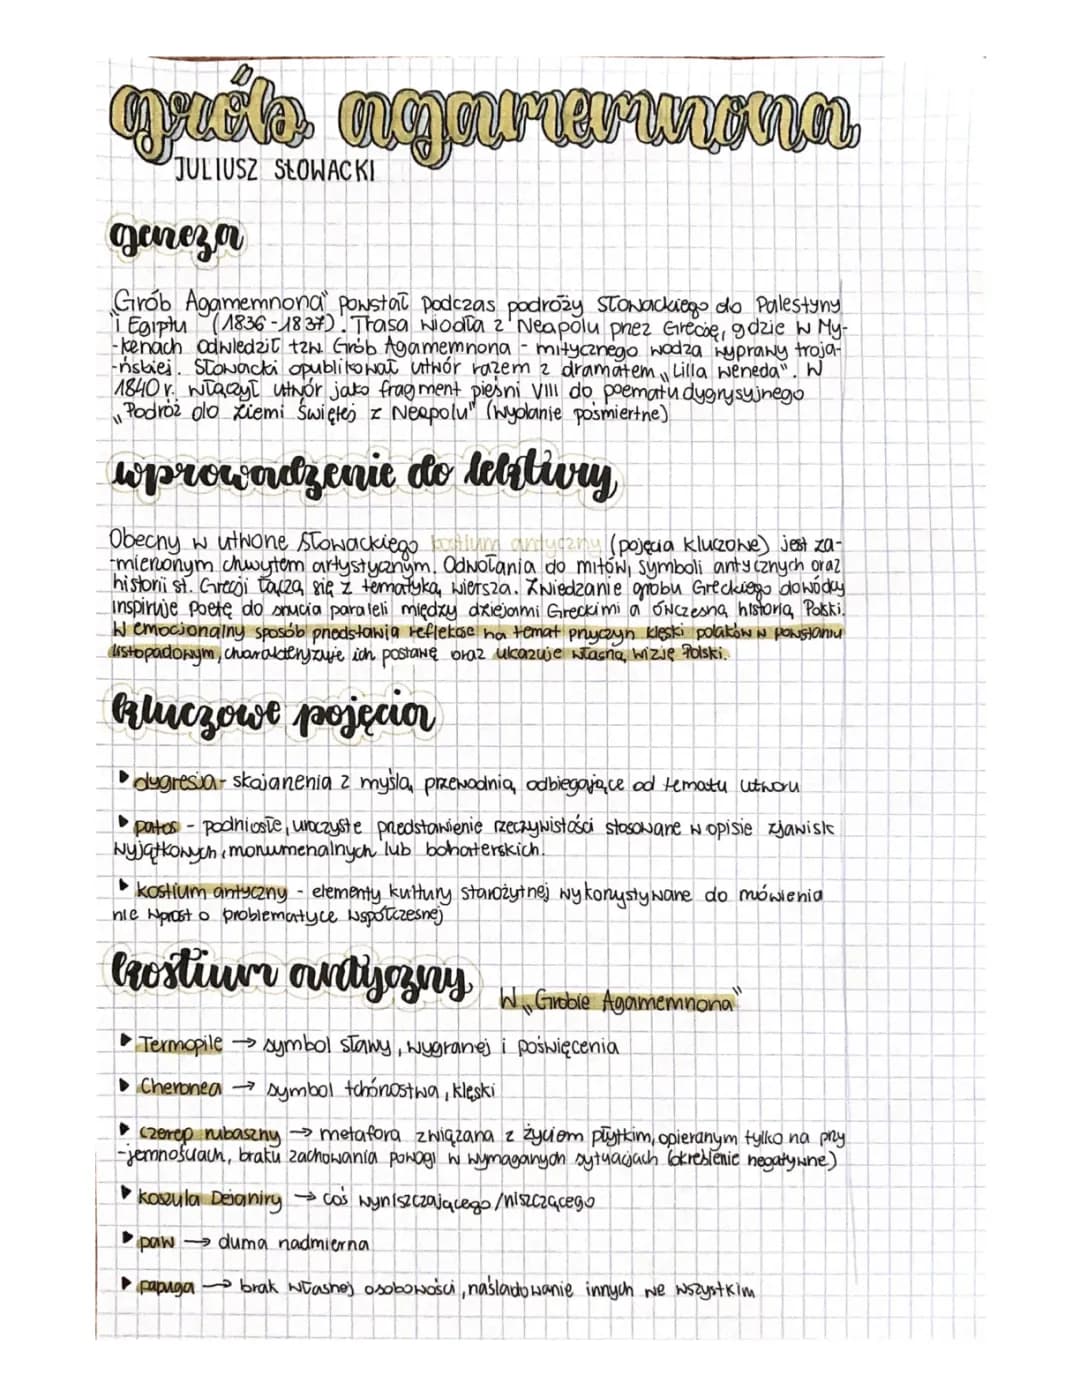 grób agamemnona
JULIUSZ SŁOWACKI
geneza
„Grób Agamemnona" powstał podczas podróży Słowackiego do Palestyny
i Egiptu (1836-1837). Trasa wiodła z Neapolu przez Grecję, gdzie w My-
-kenach odwiedził tzw. Grób Agamemnona - mitycznego wodza wyprawy troja-
-ńskiej. Słowacki opublikował utwór razem z dramatem „Lilla Weneda". W
1840 r. włączył utwór jako fragment pieśni VIII do poematu dygrysyjnego
„Podróż do Ziemi Świętej z Neapolu" (wydanie pośmiertne)
wprowadzenie do lektury
Obecny w utworze Słowackiego kostium antyczny (pojęcia kluczowe) jest za-
-mierzonym chwytem artystycznym. Odwołania do mitów, symboli antycznych oraz
historii st. Grecji łączą się z tematyką wiersza. Zwiedzanie grobu Greckiego dowódcy
inspiruje poetę do snucia paraleli między dziejami Greckimi a ówczesną historią Polski.
W emocjonalny sposób przedstawia refleksje na temat przyczyn klęski polaków w powstaniu
listopadowym, charakteryzuje ich postawę oraz ukazuje własną wizję Polski.
kluczowe pojęcia
▶ dygresja - skojarzenia z myślą przewodnią, odbiegające od tematu utworu
▶ patos - podniosłe, uroczyste przedstawienie rzeczywistości stosowane w opisie zjawisk
wyjątkowych, monumenalnych lub bohaterskich.
▶ kostium antyczny - elementy kultury starożytnej wykorzystywane do mówienia
nie wprost o problematyce współczesnej
kostium antyczny
W „Grobie Agamemnona"
▶ Termopile → symbol sławy, wygranej i poświęcenia
▶ Cheronea → symbol tchórzostwa, klęski
▶ czerep rubaszny → metafora związana z życiem płytkim, opieranym tylko na przy
-jemnościach, braku zachowania powagi w wymaganych sytuacjach (określenie negatywne)
▶ koszula Dejaniry → coś wyniszczającego/niszczącego
▶ paw → duma nadmierna
▶ papuga → brak własnej osobowości, naśladowanie innych we wszystkim